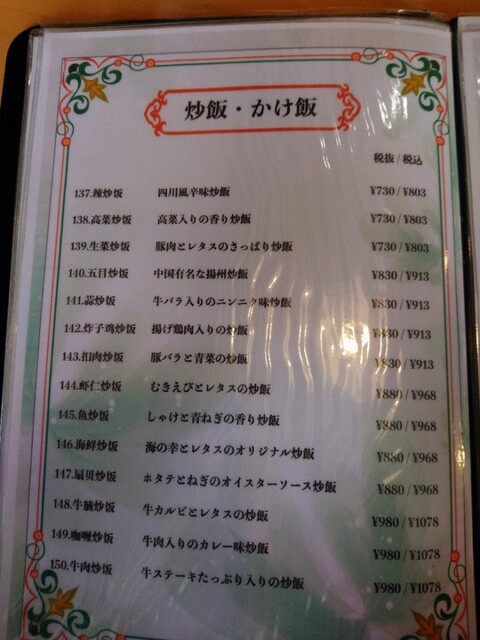 炒飯・かけ飯
税抜 / 税込
137.辣炒饭 四川風辛味炒飯 ¥730 / ¥803
138.高菜炒饭 高菜入りの香り炒飯 ¥730 / ¥803
139.生菜炒饭 豚肉とレタスのさっぱり炒飯 ¥730 / ¥803
140.五目炒饭 中国有名な揚州炒飯 ¥830 / ¥913
141.蒜炒饭 牛バラ入りのニンニク味炒飯 ¥830 / ¥913
142.炸子鸡炒饭 揚げ鶏肉入りの炒飯 ¥830 / ¥913
143.扣肉炒饭 豚バラと青菜の炒飯 ¥830 / ¥913
144.虾仁炒饭 むきえびとレタスの炒飯 ¥880 / ¥968
145.鱼炒饭 しゃけと青ねぎの香り炒飯 ¥880 / ¥968
146.海鲜炒饭 海の幸とレタスのオリジナル炒飯 ¥880 / ¥968
147.扇贝炒饭 ホタテとねぎのオイスターソース炒飯 ¥880 / ¥968
148.牛腩炒饭 牛カルビとレタスの炒飯 ¥980 / ¥1078
149.咖喱炒饭 牛肉入りのカレー味炒飯 ¥980 / ¥1078
150.牛肉炒饭 牛ステーキたっぷり入りの炒飯 ¥980 / ¥1078